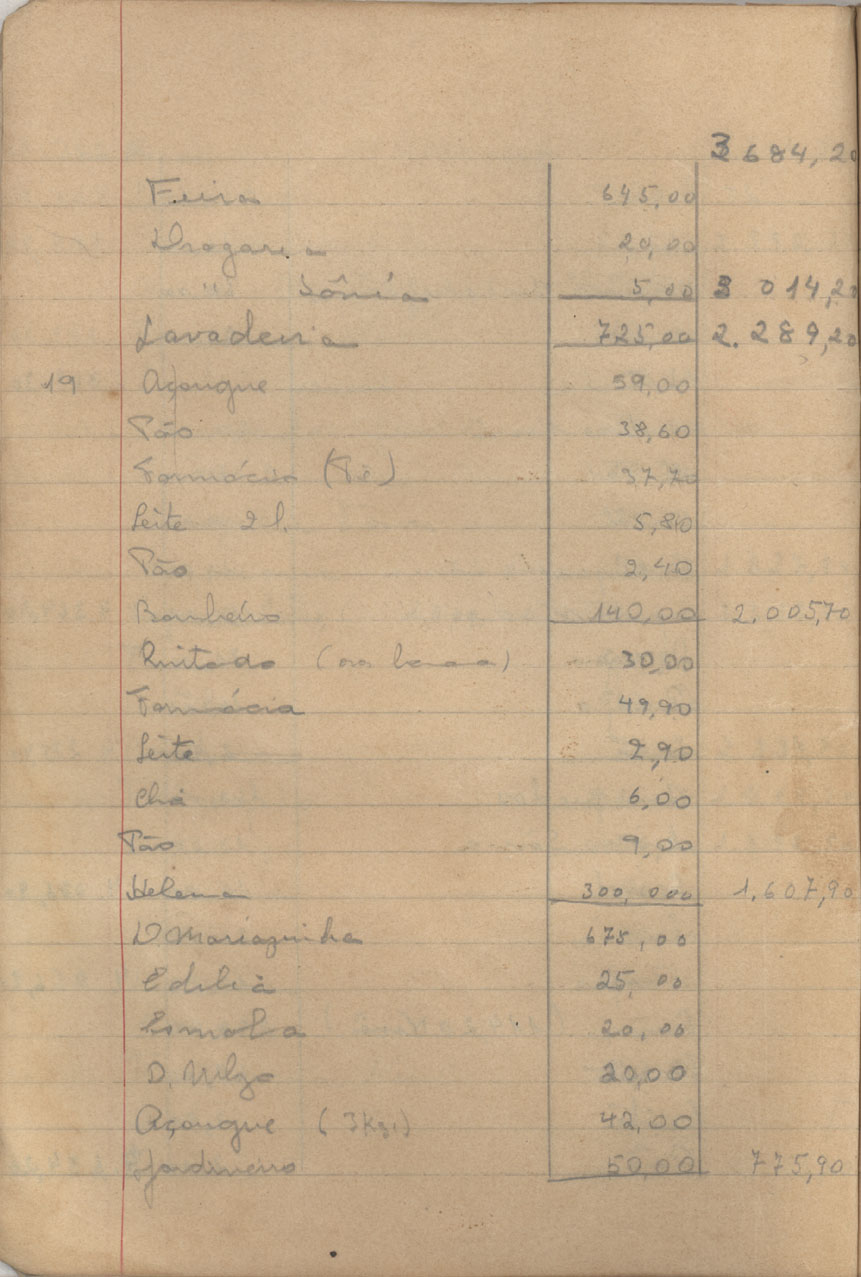 3 684,20
Feira 645,00
Drogaria 20,00
" Sônia 5,00 3 014,20
Lavadeira 725,00 2.289,20
19 Açougue 59,00
Pão 38,60
Farmácia 37,70
Leite 2 l. 5,80
Pão 2,40
Bombeiro 140,00 2.005,70
30,00
Farmácia 49,90
Leite 2,90
Chá 6,00
Pão 9,00
Helena 300,000 1.607,90
D Mariazinha 675,00
Edilia 25,00
Esmola 20,00
D. 20,00
Açougue (3 Kgs) 42,00
Jardineiro 50,00 775,90